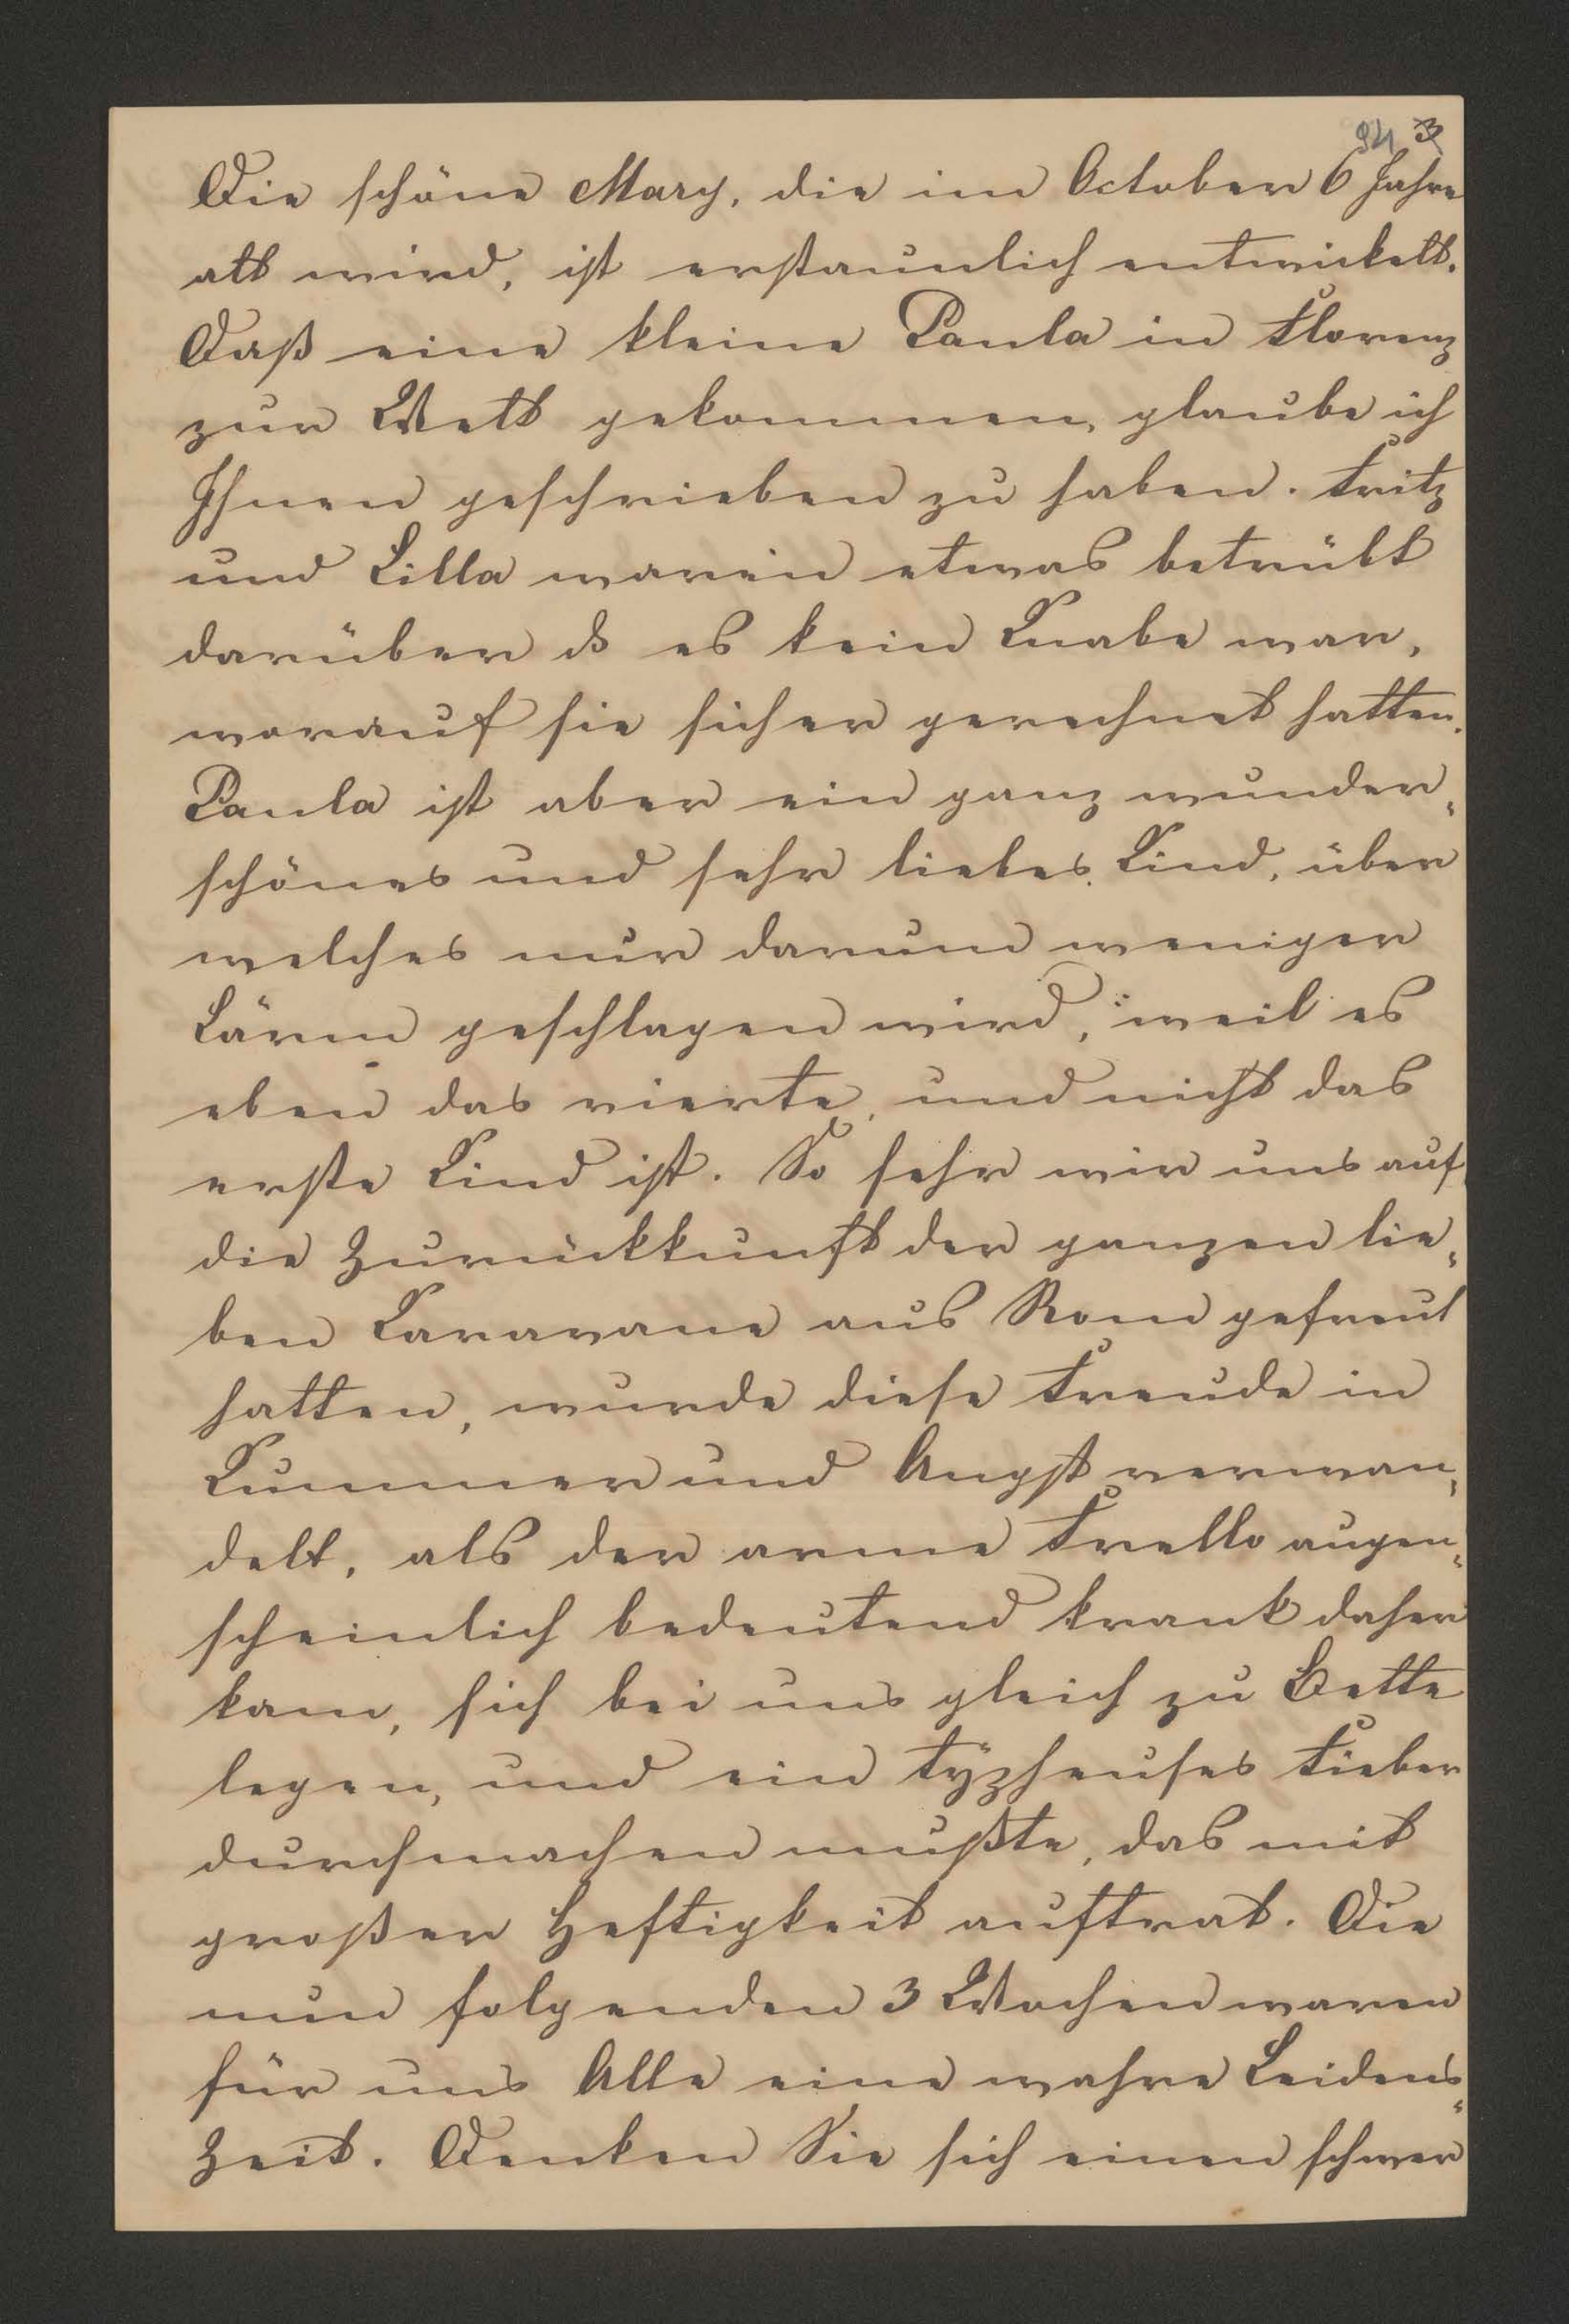 94 3
Die schöne Mary, die im October 6 Jahre
alt wird, ist erstaunlich entwickelt.
Daß eine kleine Paula in Florenz
zur Welt gekommen, glaube ich
Ihnen geschrieben zu haben. Fritz
und Lilla waren etwas betrübt
darüber ds es kein Knabe war,
worauf sie sicher gerechnet hatten.
Paula ist aber ein ganz wunder„
schönes und sehr liebes Kind, über
welches nur darum weniger
Lärm geschlagen wird, weil es
eben das vierte, und nicht das
erste Kind ist. So sehr wir uns auf
die Zurückkunft der ganzen lie„
ben Karavane aus Rom gefreut
hatten, wurde diese Freude in
Kummer und Angst verwan„
delt, als der arme Frello augen„
scheinlich bedeutend krank daher
kam, sich bei uns gleich zu Bette
legen, und ein typheuses Fieber
durchmachen mußte, das mit
großer Heftigkeit auftrat. Die
nun folgenden 3 Wochen waren
für uns Alle eine wahre Leidens„
Zeit. Denken Sie sich einen schwer